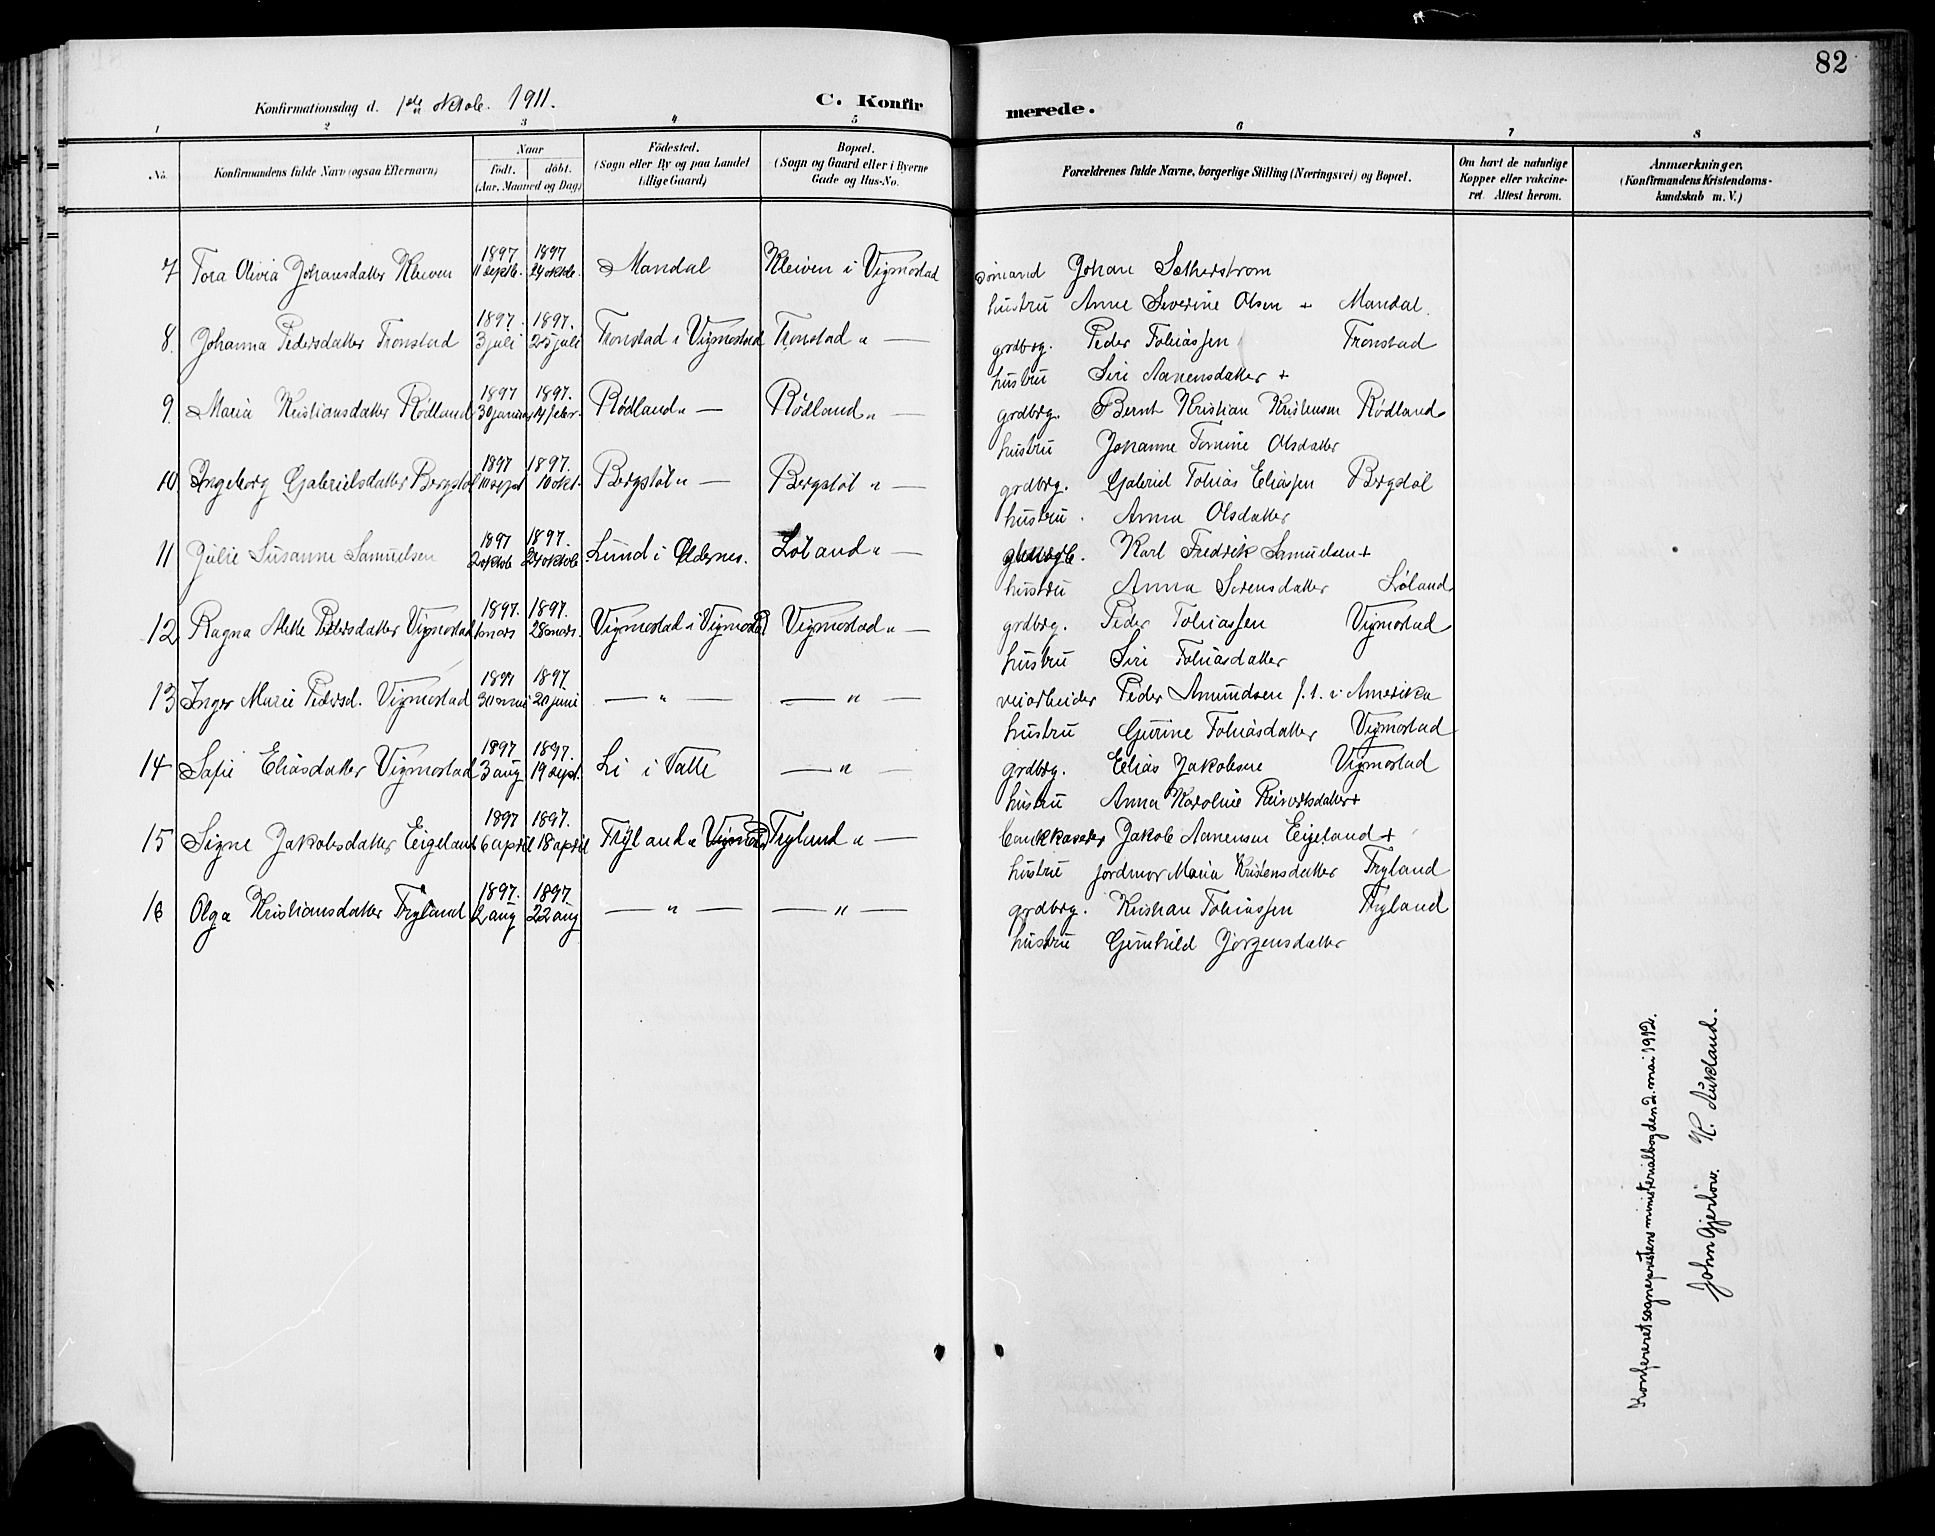 82
Konfirmationsdag d. 1ste oktob. 1911.
C. Konfirmerede.
1 2 3 4 5 6 7 8
No. Konfirmandens fulde Navn (ogsaa Efternavn) Naar født. døbt. (Aar, Maaned og Dag) Födested. (Sogn eller By og paa Landet tillige Gaard) Bopæl. (Sogn og Gaard eller i Byerne Gade og Hus-No. Forældrenes fulde Navne, borgerlige Stilling (Næringsvei) og Bopæl. Om havt de naturlige Kopper eller vakcineret. Attest herom. Anmærkninger. (Konfirmandens Kristendomskundskab m. V.)
7 Tora Olivia Johansdatter Kleiven 1897 11 septb. 1897 24 oktob. Mandal Kleiven i Vigmostad Sømand Johan Sætherstrøm
hustru Anne Severine Olsen + Mandal.
8. Johanna Pedersdatter Tronstad 1897. 3 juli 1897. 25 juli Tronstad i Vigmostad Tronstad " — grdbrg. Peder Tobiassen Tronstad
hustru Siri Aanensdatter +
9. Maria Kristiansdatter Rødland 1897 30 januar 1897. 14 febr. Rødland " — Rødland " — grdbrg. Bernt Kristian Kristensen Rødland
hustru Johanne Tomine Olsdatter
10 Ingeborg Gabrielsdatter Bergstøl 1897 10 sept 1897. 10 okt. Bergstøl " — Bergstøl " — grdbrg. Gabriel Tobias Eliassen Bergstøl
hustru. Anna Olsdatter
11 Julie Susanne Samuelsen 1897 2 oktob 1897. 24 oktob. Lund i Oddernes. Løland " — Karl Fredrik Samuelsen +
hustru Anna Sørensdatter Løland
12 Ragna Alette Pedersdatter Vigmostad 1897. 1 mars 1897. 28 mars. Vigmostad i Vigmostad Vigmostad " — grdbrg. Peder Tobiassen Vigmostad
hustru Siri Tobiasdatter
13 Inger Marie Pedersd. Vigmostad 1897 30 mai 1897. 20 juni — " — — " — veiarbeider Peder Amundsen f. t. i Amerika
hustru Gurine Tobiasdatter Vigmostad
14 Sofie Eliasdatter Vigmostad 1897 3 aug 1897. 19 sept. Li i Valle — " — grdbrg. Elias Jakobsen Vigmostad
hustru Anna Karoline Reinertsdatter +
15 Signe Jakobsdatter Eigeland 1897 6 april 1897. 18 april Fryland " Vigmostad Fryland " — bankkaserer Jakob Aanensen Eigeland +
hustru jordmor Maria Kristensdatter Fryland
16 Olga Kristiansdatter Fryland 1897. 2 aug 1897. 22 aug — " — — " — grdbrg. Kristian Tobiassen Fryland
hustru Gunhild Jørgensdatter
Konfereret sogneprestens ministerialbog den 2. mai 1912.
John Gjerløw. K. Auksland.